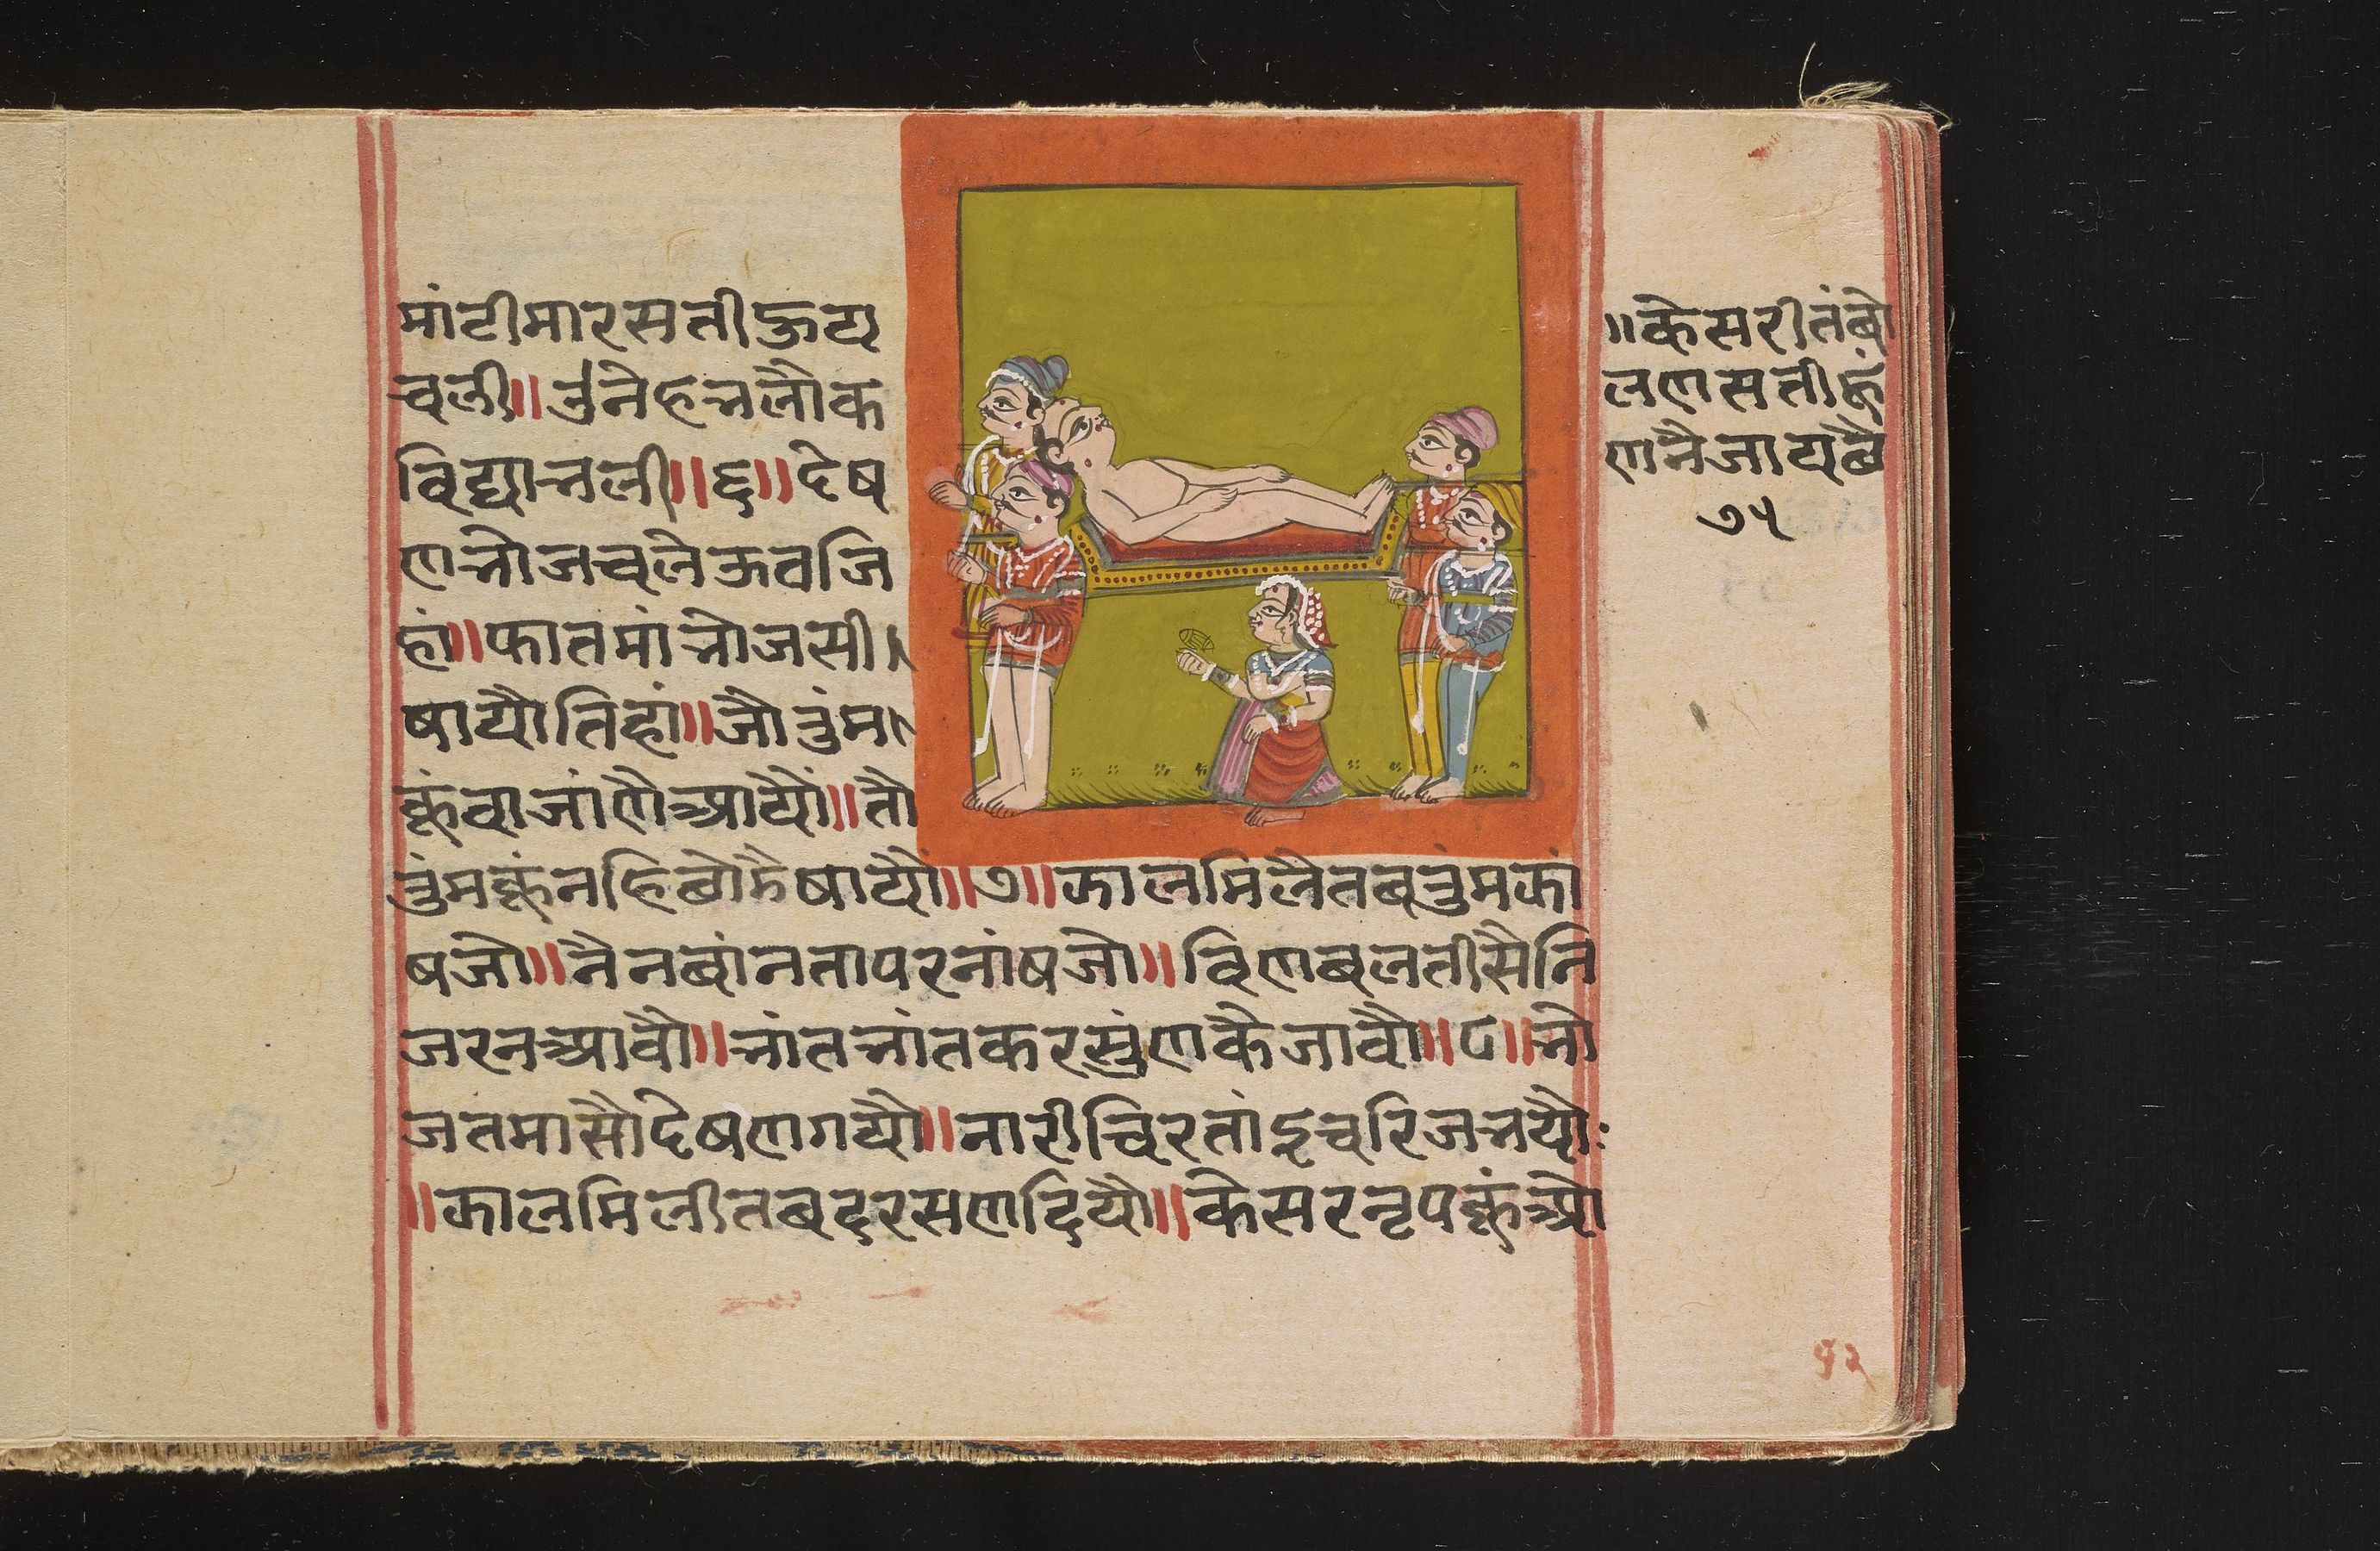 मांटीमारसतीऊठय
चली॥उंनेहत्नलौक
विद्यात्नली॥६॥देष
णत्तोजचलेऊवजि
हां॥फातमांत्तोजसी।
षायौतिहां॥जौतुंम
कूंवाजांणेआयौं॥तौ
तुंमकूंनहिबोमैषायौं॥७॥कालमिलेतबतुंमकां
षजो॥नैनबांनतापरनांषजो॥विणबलतीसैनि
जरनआवौ॥त्नांतत्नांतकरसुंणकैजावौ॥८॥त्तो
जतमासौदेषणगयौ॥नारीचिरतांइचरिजत्नयौ
॥कालमिलीतबदरसणदियौ॥केसरनृपकूंओ
॥केसरीतंबो
लणसतीकूं
णनैजायबै
७५
५२